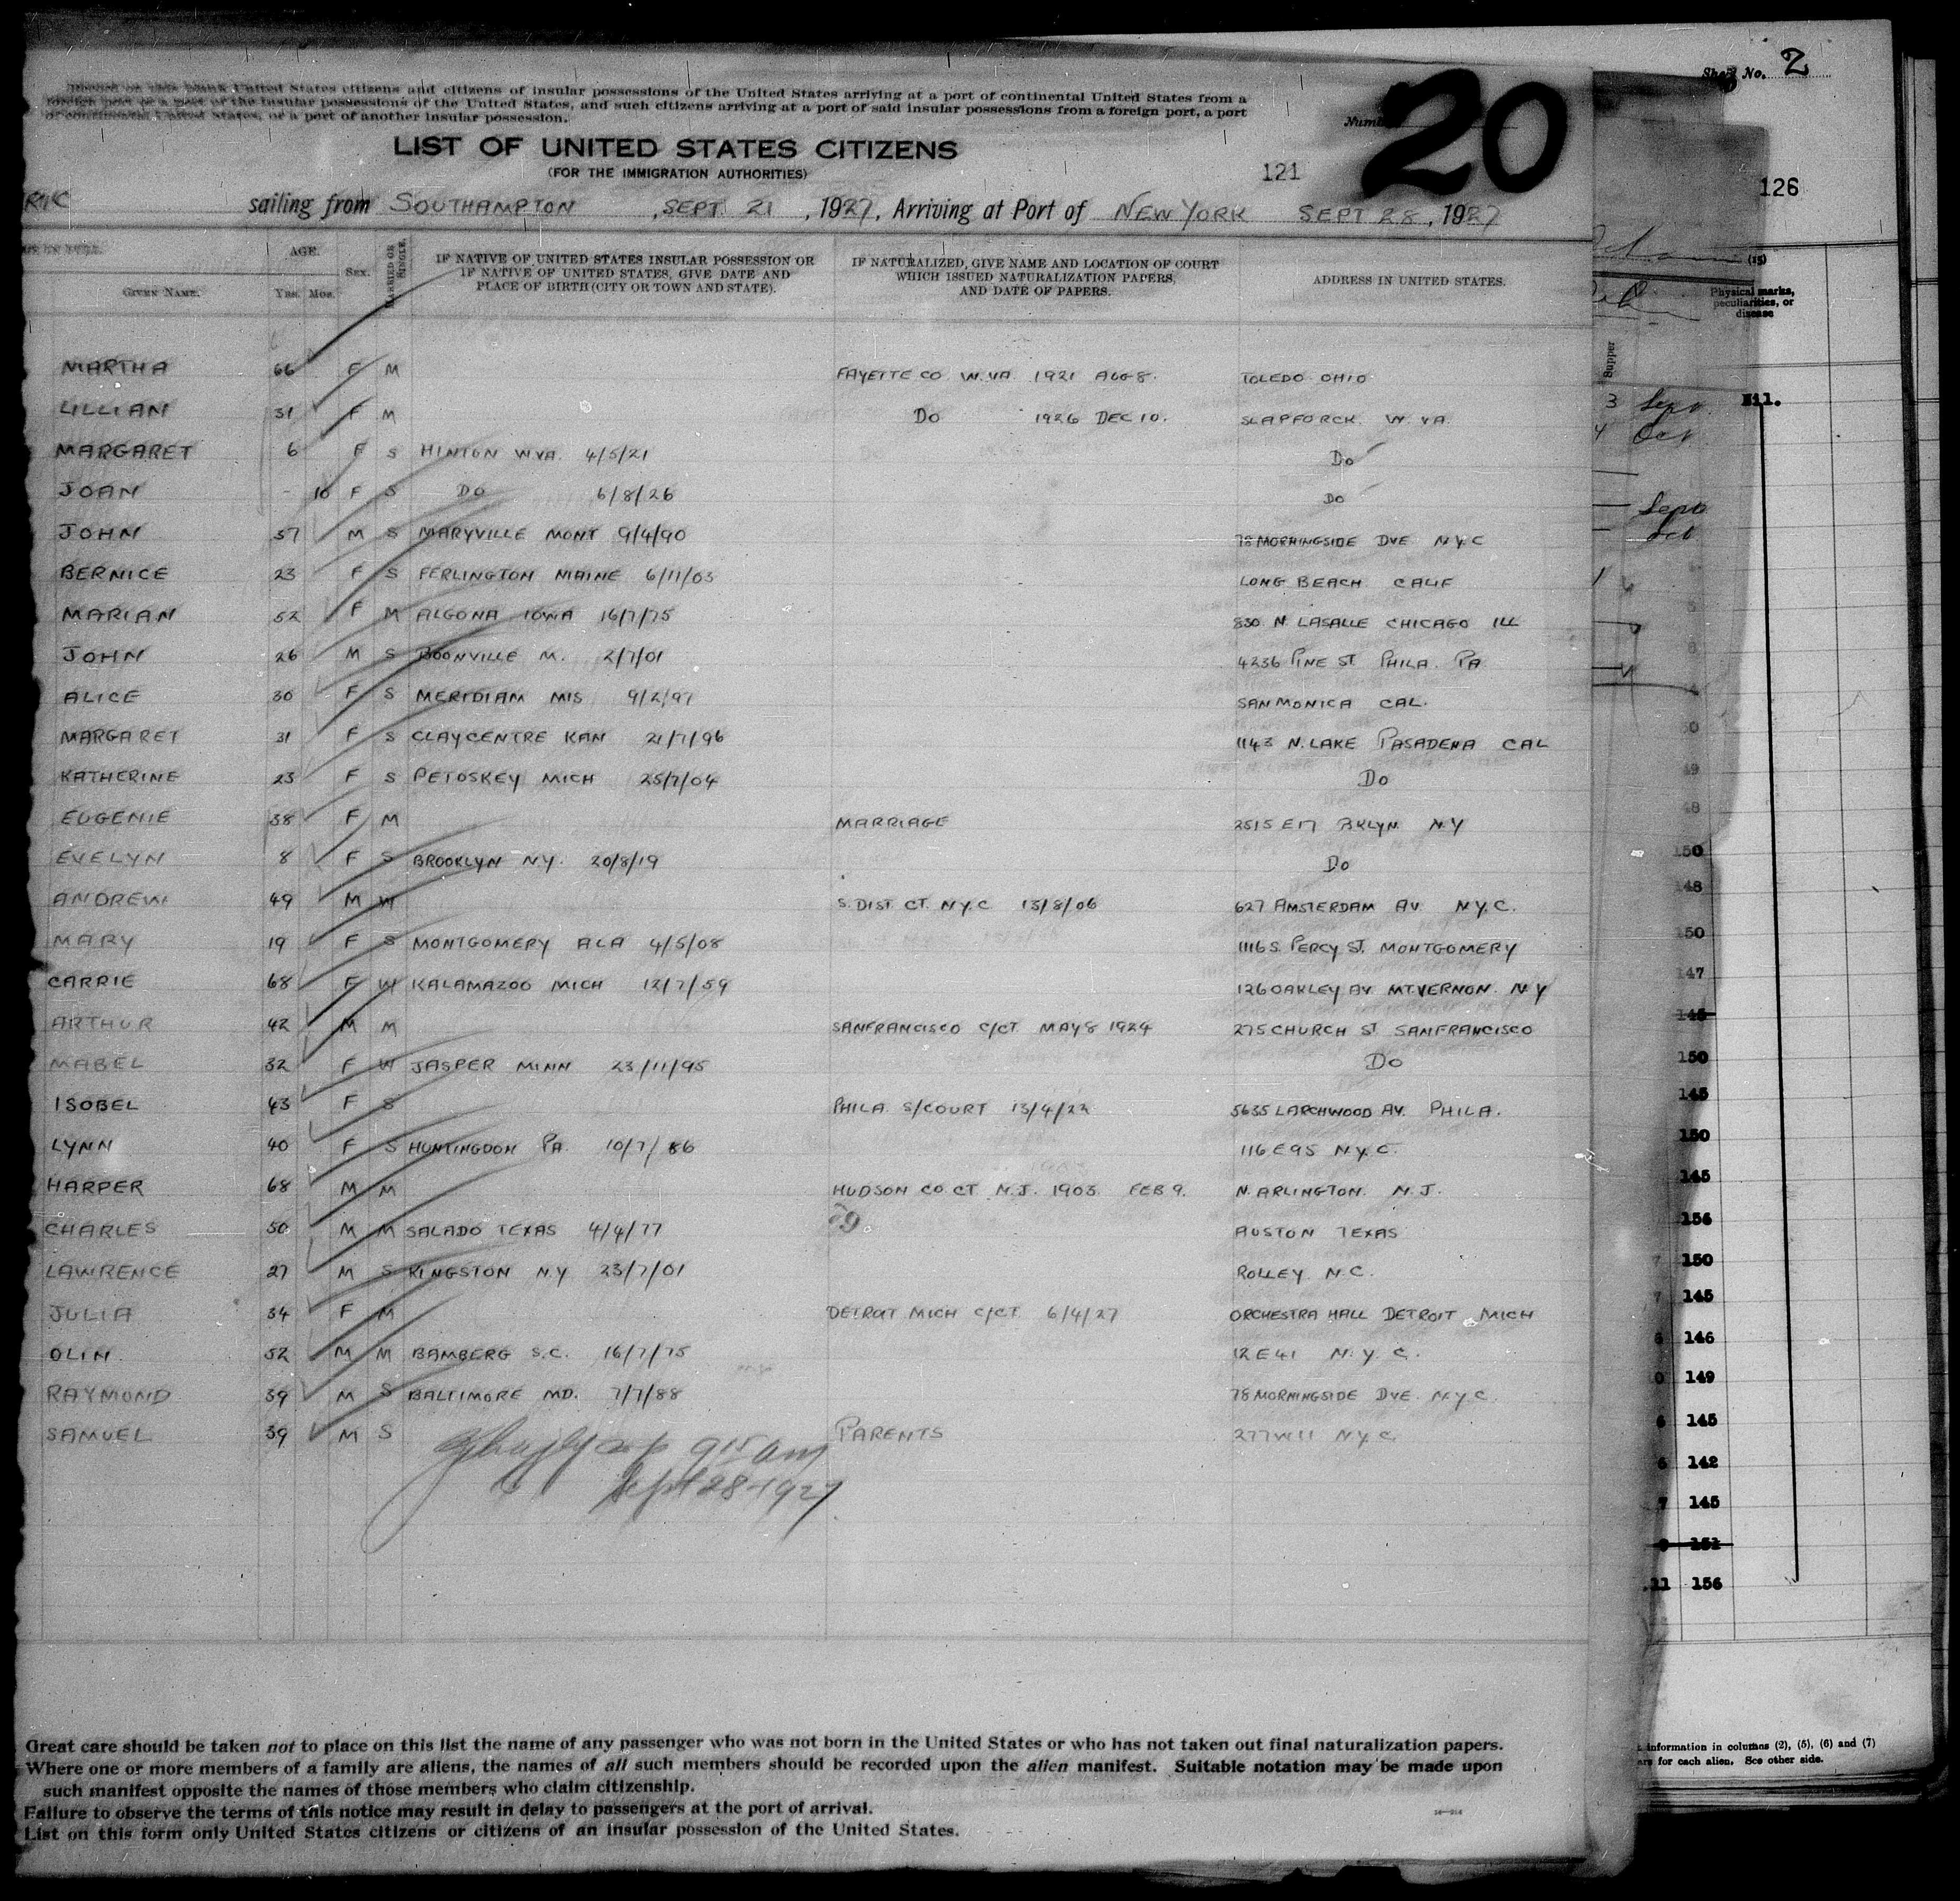 United States citizens and citizens of insular possessions of the United States arriving at a port of continental United States from a
foreign port or a port of the insular possessions of the United States, and such citizens arriving at a port of said insular possessions from a foreign port, a port
of continental United States, or a port of another insular possession.
20
Sheet No. 2
LIST OF UNITED STATES CITIZENS
(FOR THE IMMIGRATION AUTHORITIES)
121
126
RIC sailing from SOUTHAMPTON, SEPT. 21, 1927, Arriving at Port of NEW YORK SEPT 28, 1927
GIVEN NAME. AGE. Yrs. Mos. SEX. MARRIED OR SINGLE. IF NATIVE OF UNITED STATES INSULAR POSSESSION OR IF NATIVE OF UNITED STATES, GIVE DATE AND PLACE OF BIRTH (CITY OR TOWN AND STATE). IF NATURALIZED, GIVE NAME AND LOCATION OF COURT WHICH ISSUED NATURALIZATION PAPERS, AND DATE OF PAPERS. ADDRESS IN UNITED STATES.
(15)
Physical marks, peculiarities, or disease
Supper
MARTHA 66 F M FAYETTE CO. W.VA. 1921 AUG 8. TOLEDO OHIO
LILLIAN 31 F M DO 1926 DEC 10. SLAPFORCK W. VA.
MARGARET 6 F S HINTON W.VA. 4/5/21 DO
JOAN - 10 F S DO 6/8/26 DO
JOHN 37 M S MARYVILLE MONT 9/4/90 78 MORNINGSIDE DVE N.Y.C
BERNICE 23 F S FERLINGTON MAINE 6/11/03 LONG BEACH CALIF
MARIAN 52 F M ALGONA IOWA 16/7/75 830 N. LASALLE CHICAGO ILL
JOHN 26 M S BOONVILLE M. 2/7/01 4236 PINE ST PHILA. PA
ALICE 30 F S MERIDIAM MIS 9/2/97 SAN MONICA CAL.
MARGARET 31 F S CLAYCENTRE KAN 21/7/96 1143 N. LAKE PASADENA CAL
KATHERINE 23 F S PETOSKEY MICH 25/7/04 DO
EUGENIE 38 F M MARRIAGE 2515 E 17 BKLYN N.Y
EVELYN 8 F S BROOKLYN N.Y. 20/8/19 DO
ANDREW 49 M W S. DIST. CT. N.Y.C 13/8/06 627 AMSTERDAM AV. N.Y.C.
MARY 19 F S MONTGOMERY ALA 4/5/08 1116 S. PERCY ST. MONTGOMERY
CARRIE 68 F W KALAMAZOO MICH 12/7/59 126 OAKLEY AV MT VERNON. N Y
ARTHUR 42 M M SANFRANCISCO C/CT. MAY 8 1924 275 CHURCH ST SANFRANCISCO
MABEL 32 F W JASPER MINN 23/11/95 DO
ISOBEL 43 F S PHILA. S/COURT 13/4/22 5635 LARCHWOOD AV. PHILA.
LYNN 40 F S HUNTINGDON PA. 10/7/86 116 E 95 N.Y.C.
HARPER 68 M M HUDSON CO. CT. N.J. 1903 FEB 9. N. ARLINGTON. N.J.
CHARLES 50 M M SALADO TEXAS 4/4/77 AUSTON TEXAS
LAWRENCE 27 M S KINGSTON N.Y 23/7/01 ROLLEY N.C.
JULIA 34 F M DETROIT MICH C/CT. 6/4/27 ORCHESTRA HALL DETROIT MICH
OLIN. 52 M M BAMBERG S.C. 16/7/75 12 E 41 N.Y.C.
RAYMOND 39 M S BALTIMORE MD. 7/7/88 78 MORNINGSIDE DVE. N.Y.C.
SAMUEL 39 M S PARENTS 277 W 11 N.Y.C.
9 15 am
Sept 28-1927
3 Sept. Nil.
4 Oct
Sept
Oct
150
148
150
147
145
150
145
150
145
156
150
145
146
149
145
142
145
151
11 156
Great care should be taken not to place on this list the name of any passenger who was not born in the United States or who has not taken out final naturalization papers.
Where one or more members of a family are aliens, the names of all such members should be recorded upon the alien manifest. Suitable notation may be made upon
such manifest opposite the names of those members who claim citizenship.
Failure to observe the terms of this notice may result in delay to passengers at the port of arrival.
List on this form only United States citizens or citizens of an insular possession of the United States.
information in columns (2), (5), (6) and (7)
for each alien. See other side.